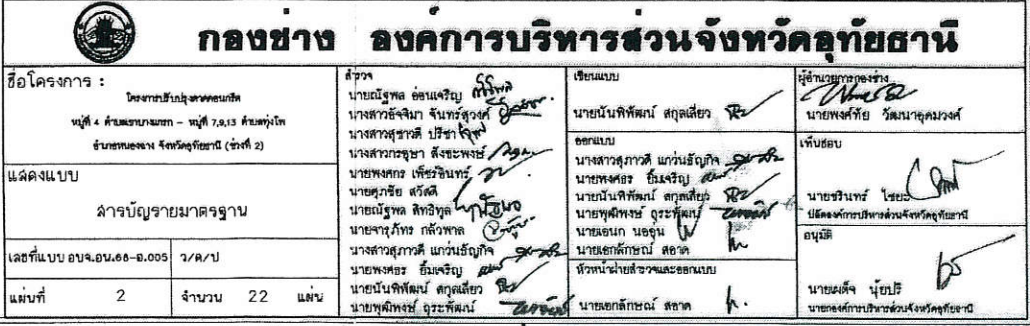 กองช่าง องค์การบริหารส่วนจังหวัดอุทัยธานี
ชื่อโครงการ :
โครงการปรับปรุงคาคอนกรีต
หมู่ที่ 4 ตำบลเขาบางแกรก - หมู่ที่ 7,9,13 ตำบลทุ่งโพ
อำเภอหนองฉาง จังหวัดอุทัยธานี (ช่วงที่ 2)
แสดงแบบ
สารบัญรายมาตรฐาน
เลขที่แบบ อบจ.อน.68-อ.005 ว/ด/ป
แผ่นที่ 2 จำนวน 22 แผ่น
สำรวจ
นายณัฐพล อ่อนเจริญ
นางสาวอัจจิมา จันทร์สุวงศ์
นางสาวสุชาวดี ปรีชา
นางสาวกรอุษา สังชะพงษ์
นายพงศกร เพ็ชรอินทร์
นายศุภชัย สวัสดี
นายณัฐพล สิทธิพูล
นายจารุภัทร กลัวพาล
นางสาวสุภาวดี แกว่นธัญกิจ
นายพงศธร ยิ้มเจริญ
นายนันพิพัฒน์ สกุลเสี่ยว
นายพุฒิพงษ์ ถุระพัฒน์
เขียนแบบ
นายนันพิพัฒน์ สกุลเสี่ยว
ออกแบบ
นางสาวสุภาวดี แกว่นธัญกิจ
นายพงศธร ยิ้มเจริญ
นายนันพิพัฒน์ สกุลเสี่ยว
นายพุฒิพงษ์ ถุระพัฒน์
นายเอนก นออุ่น
นายเอกลักษณ์ สอาด
หัวหน้าฝ่ายสำรวจและออกแบบ
นายเอกลักษณ์ สอาด
ผู้อำนวยการกองช่าง
นายพงศ์ทัย วัฒนาอุดมวงศ์
เห็นชอบ
นายชรินทร์
ปลัดองค์การบริหารส่วนจังหวัดอุทัยธานี
อนุมัติ
นายเผด็จ นุ้ยปรี
นายกองค์การบริหารส่วนจังหวัดอุทัยธานี